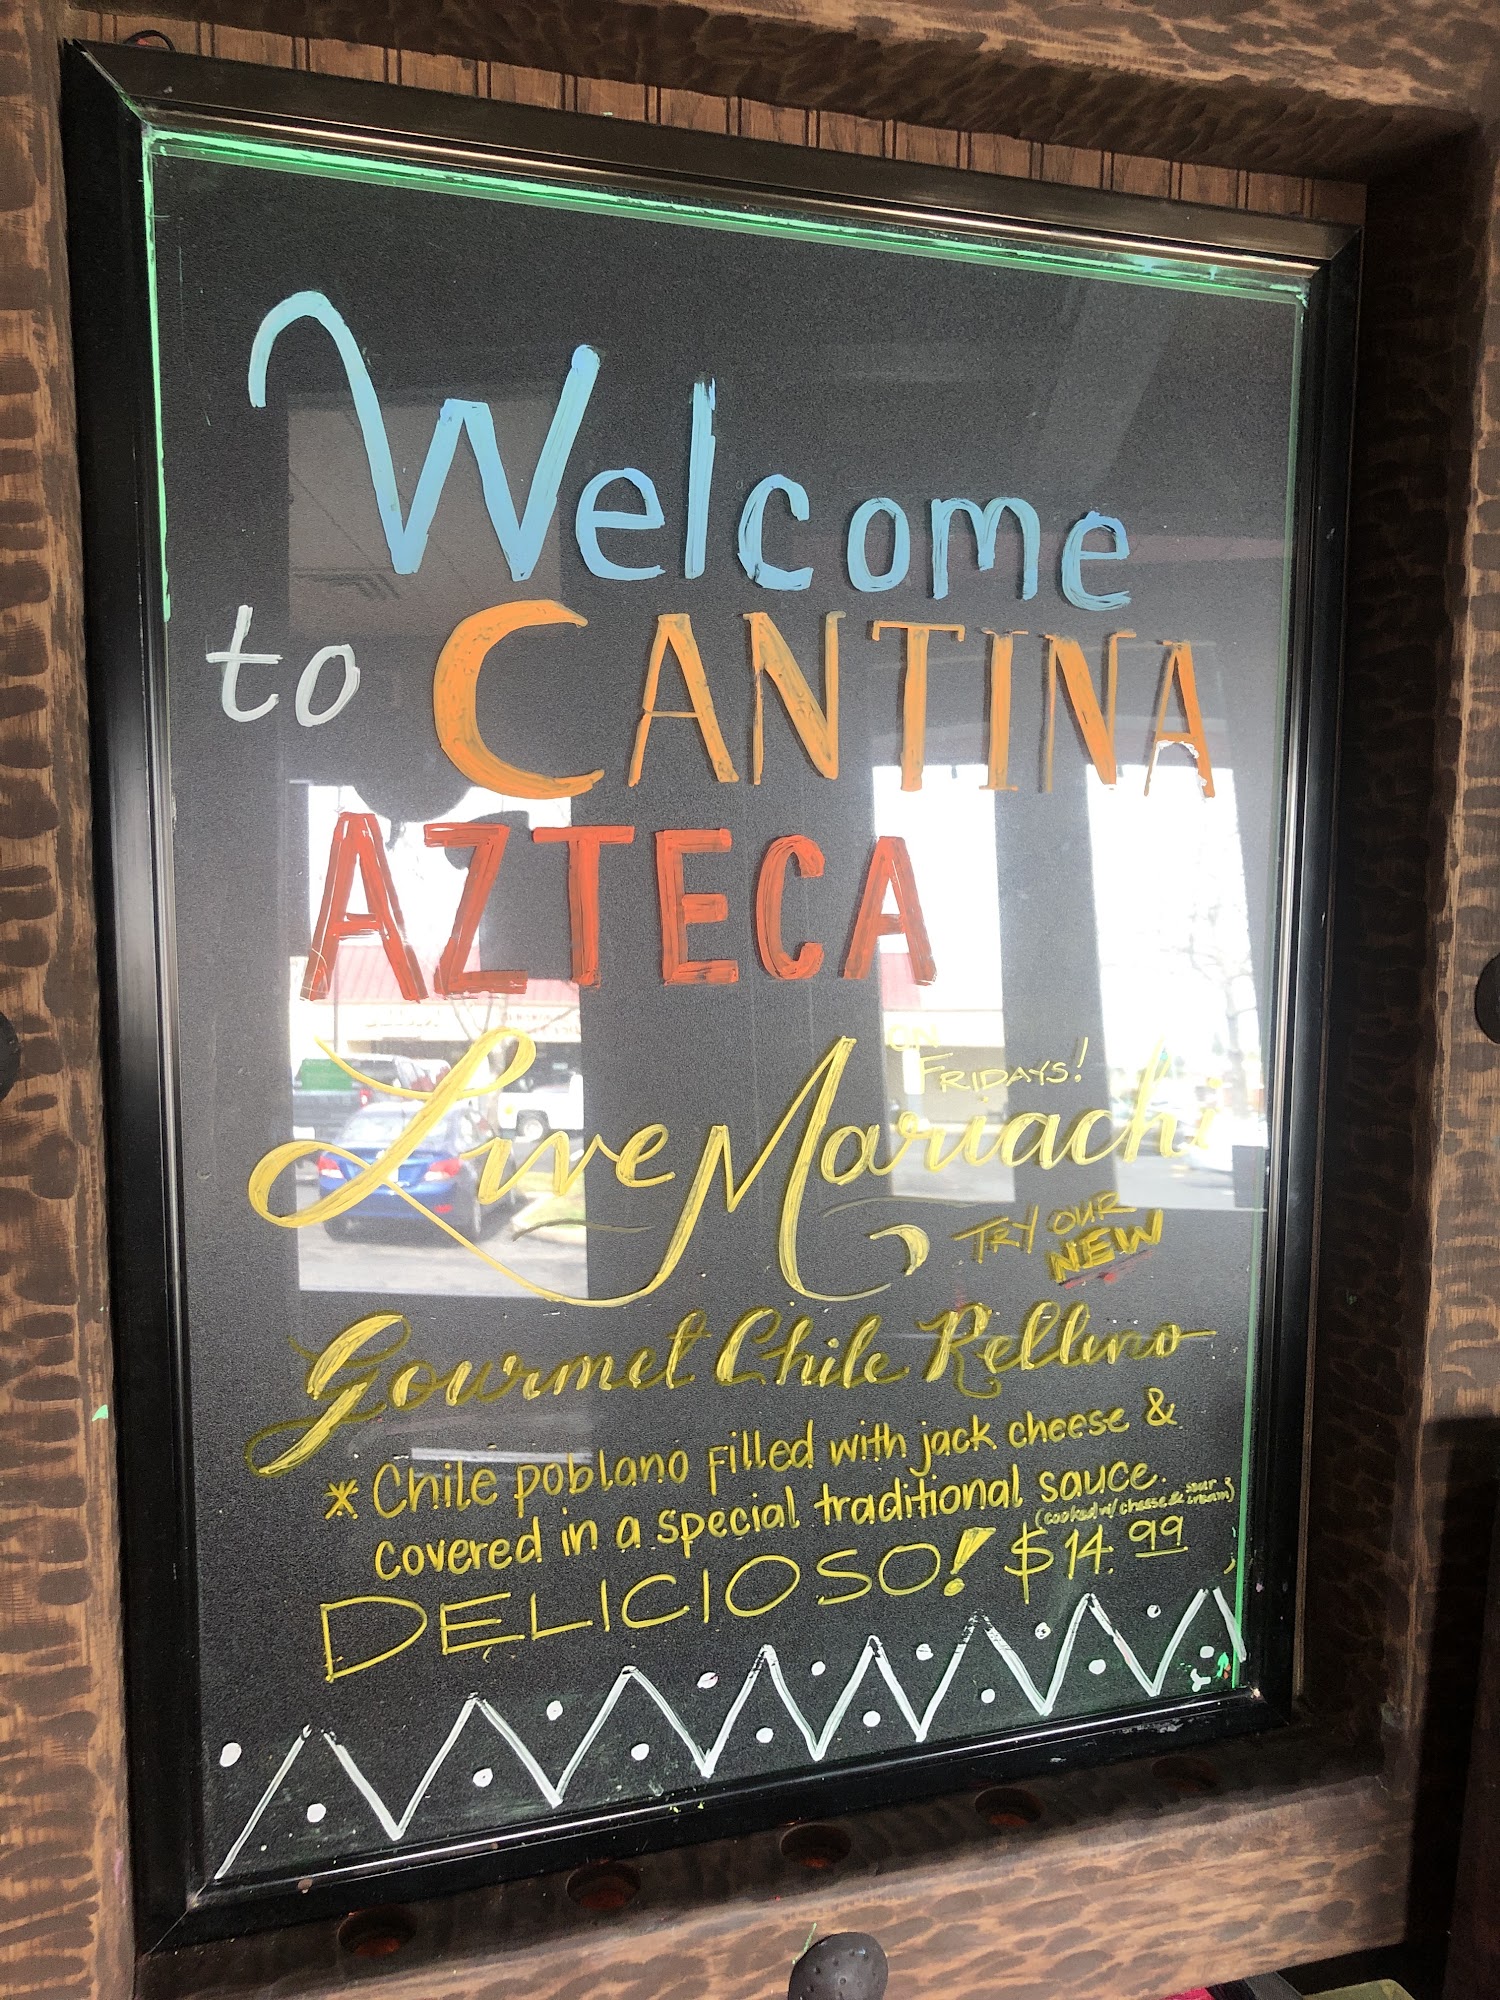 Welcome
to CANTINA
AZTECA
ON
FRIDAYS!
Live Mariachi
TRY OUR
NEW
Gourmet Chile Rellino
* Chile poblano filled with jack cheese &
covered in a special traditional sauce.
(cooked w/ cheese & sour cream)
DELICIOSO! $14.99